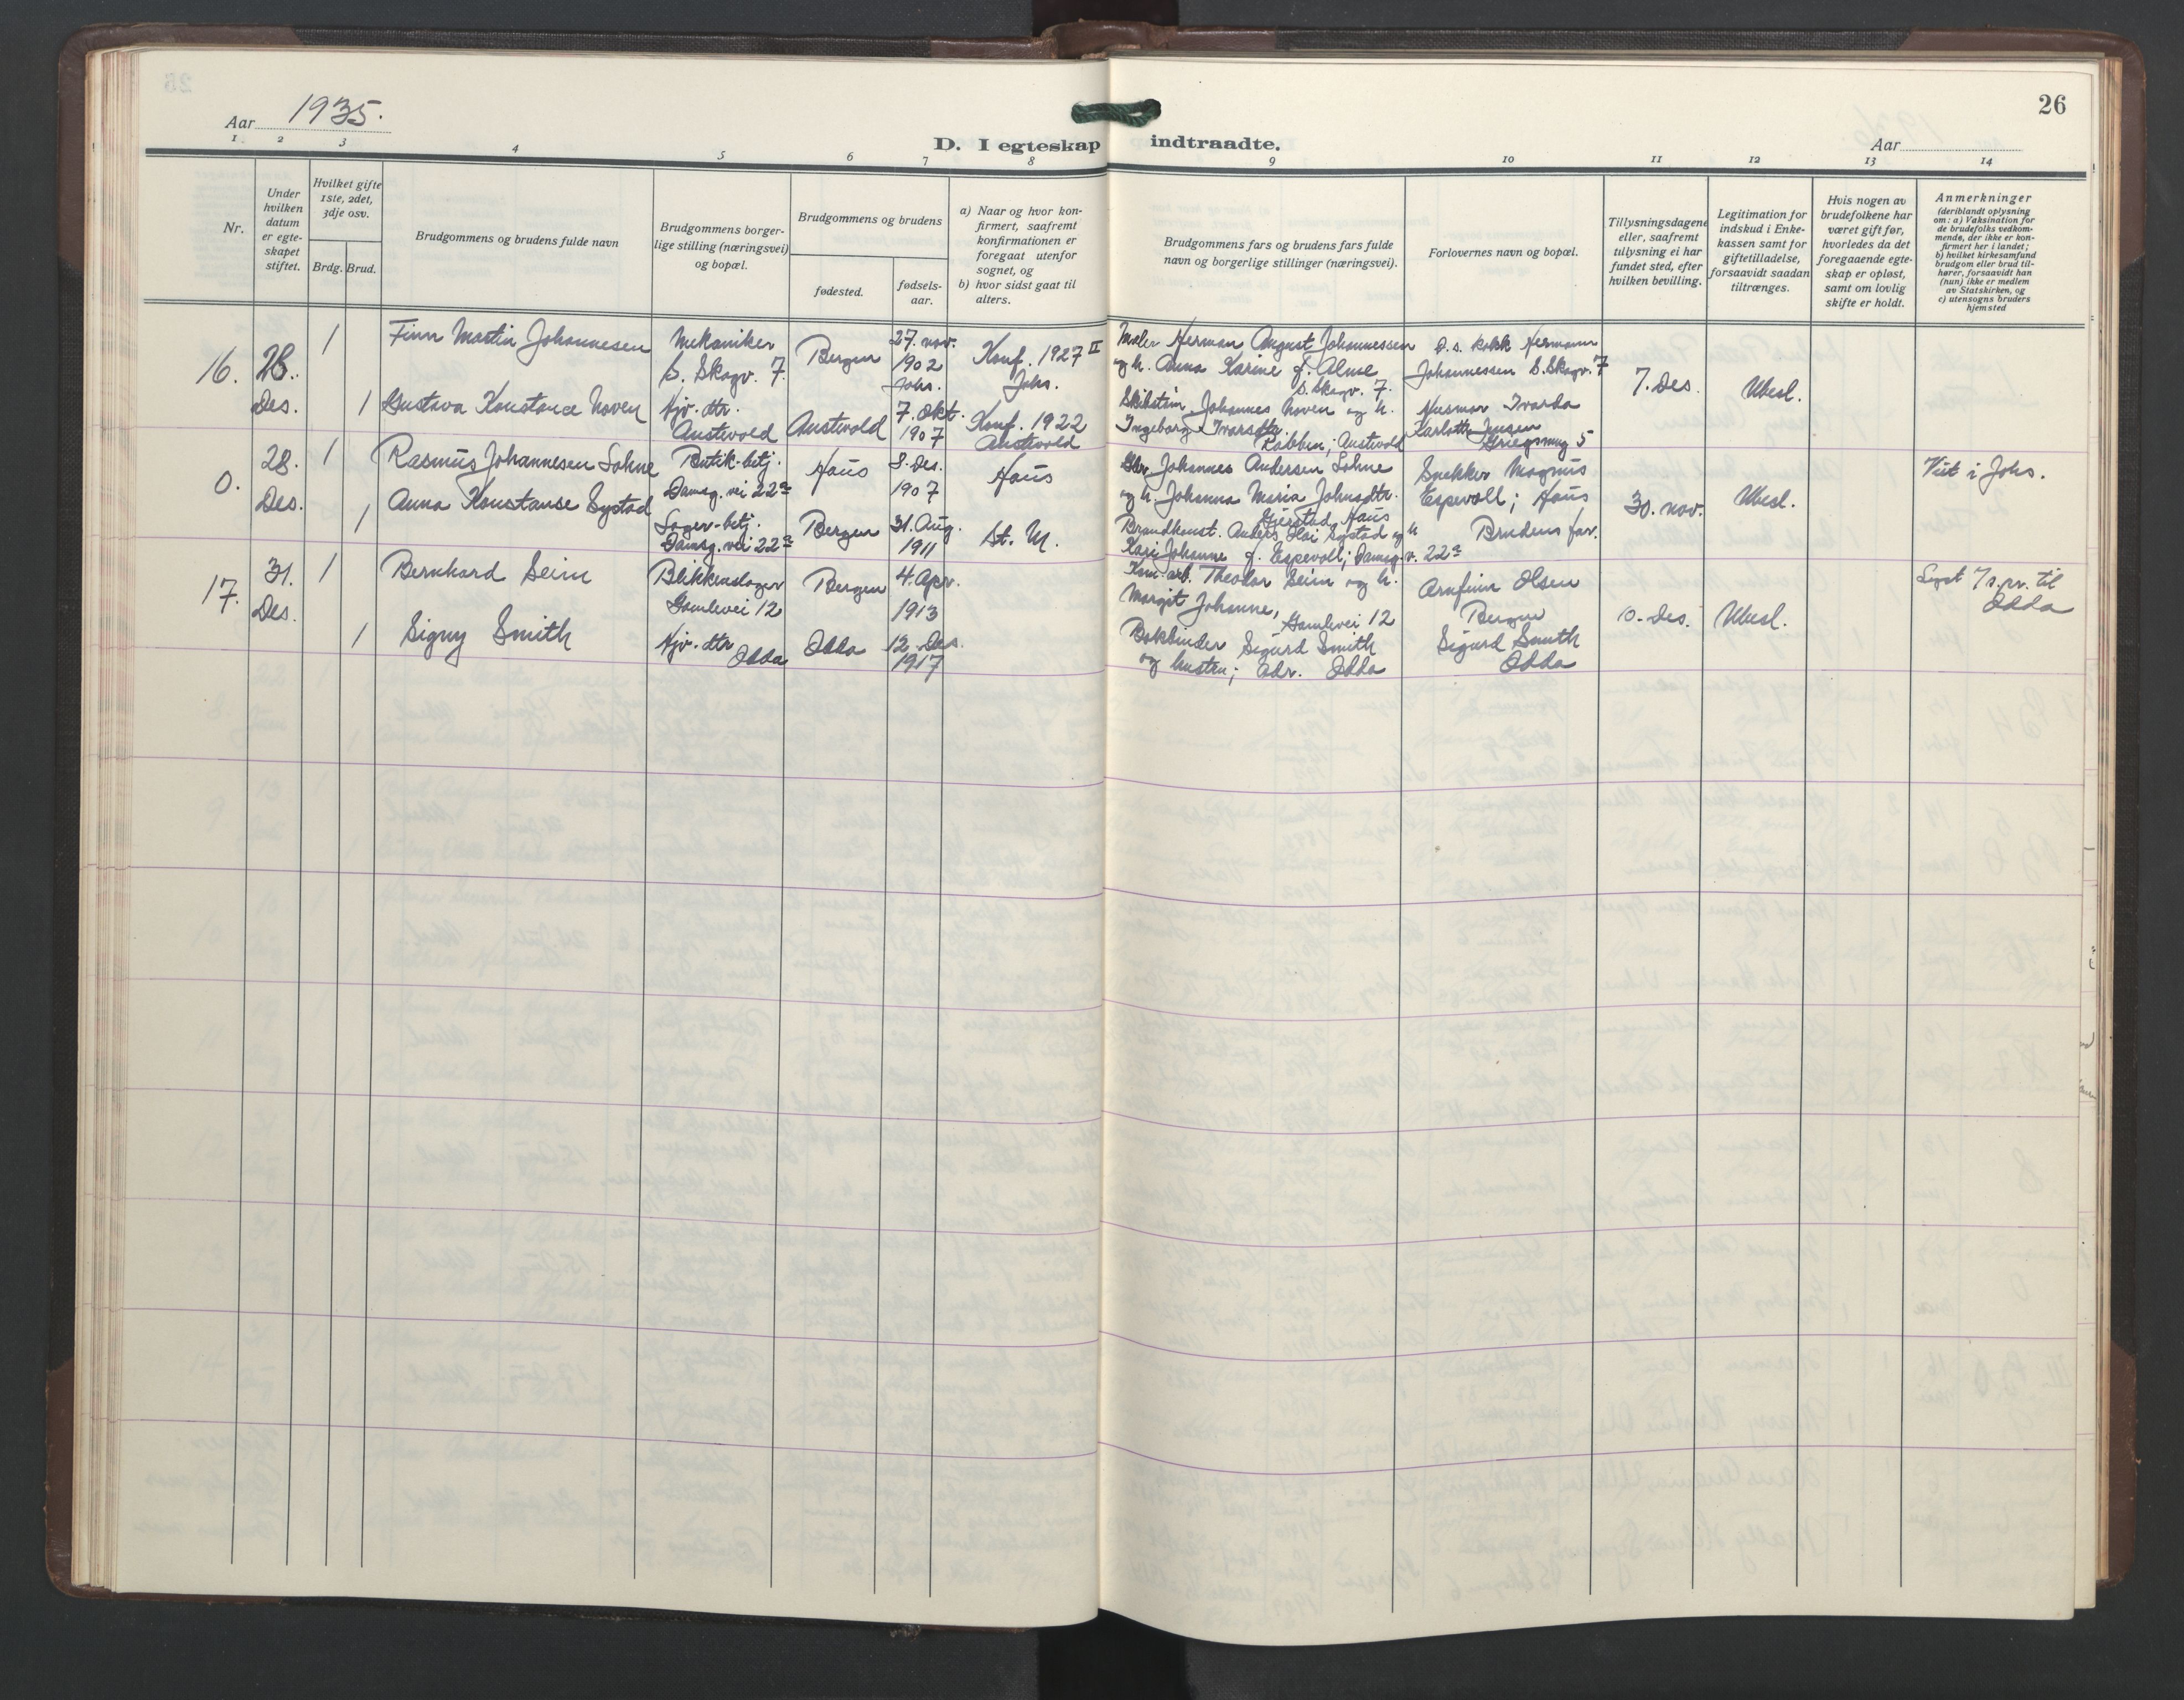 26
Aar 1935.
D. I egteskap indtraadte.
Aar
1 2 3 4 5 6 7 8 9 10 11 12 13 14
Nr.
Under hvilken datum er egteskapet stiftet.
Hvilket gifte 1ste, 2det, 3dje osv.
Brdg. Brud.
Brudgommens og brudens fulde navn
Brudgommens borgerlige stilling (næringsvei) og bopæl.
Brudgommens og brudens
fødested.
fødselsaar.
a) Naar og hvor konfirmert, saafremt konfirmationen er foregaat utenfor sognet, og
b) hvor sidst gaat til alters.
Brudgommens fars og brudens fars fulde navn og borgerlige stillinger (næringsvei).
Forlovernes navn og bopæl.
Tillysningsdagene eller, saafremt tillysning ei har fundet sted, efter hvilken bevilling.
Legitimation for indskud i Enkekassen samt for giftetilladelse, forsaavidt saadan tiltrænges.
Hvis nogen av brudefolkene har været gift før, hvorledes da det foregaaende egteskap er opløst, samt om lovlig skifte er holdt.
Anmerkninger
(deriblandt oplysning om: a) Vaksination for de brudefolks vedkommende, der ikke er konfirmert her i landet;
b) hvilket kirkesamfund brudgom eller brud tilhører, forsaavidt han (hun) ikke er medlem av Statskirken, og
c) utensogns bruders hjemsted
16. 28. Des.
1 Finn Martin Johannesen
Mekaniker
S. Skogv. 7.
Bergen
27. nov.
1902
Johs.
Konf. 1927 II
Johs.
Maler Herman August Johannessen
og h. Anna Karine f. Alme
S. Skogv. 7.
D.s. kokk Hermann
Johannessen S. Skogv. 7
7. Des.
Ubesl.
1 Gustava Konstance Noven
Hjv. dtr.
Austevold
Austevold
7. Okt.
1907
Konf. 1922
Austevold
Johannes Noven og h.
Ingeborg Ivarsdtr.
Rabben; Austevold
Karlotte Jensen
Griegsmug 5
0. 28. Des.
1 Rasmus Johannesen Lohne
Butik-betj.
Damsg. vei 22a
Haus
8. Des.
1907
Haus
Johannes Andersen Lohne
og h. Johanna Maria Johnsdtr.
Gjerstad, Haus
Snekker Magnus
Espevoll; Haus
30. nov.
Ubesl.
Viet i Johs.
1 Anna Konstanse Systad
Lager-betj.
Damsg. vei 22a
Bergen
31. Aug.
1911
St. M.
Brandkonst. Anders Systad og h
Kari Johanne f. Espevoll; Damsg. v. 22a
Brudens far.
17. 31. Des.
1 Bernhard Seim
Blikkenslager
Gamlevei 12
Bergen
4. Apr.
1913
Kom. arb. Theodor Seim og h.
Margit Johanne, Gamlevei 12
Arnfinn Olsen
Bergen
0. Des.
Ubesl.
til
Odda
1 Signy Smith
Hjv. dtr
Odda
Odda
12. Des.
1917
Bokbinder Sigurd Smith
og hustru; Adr. Odda
Sigurd Smith
Odda